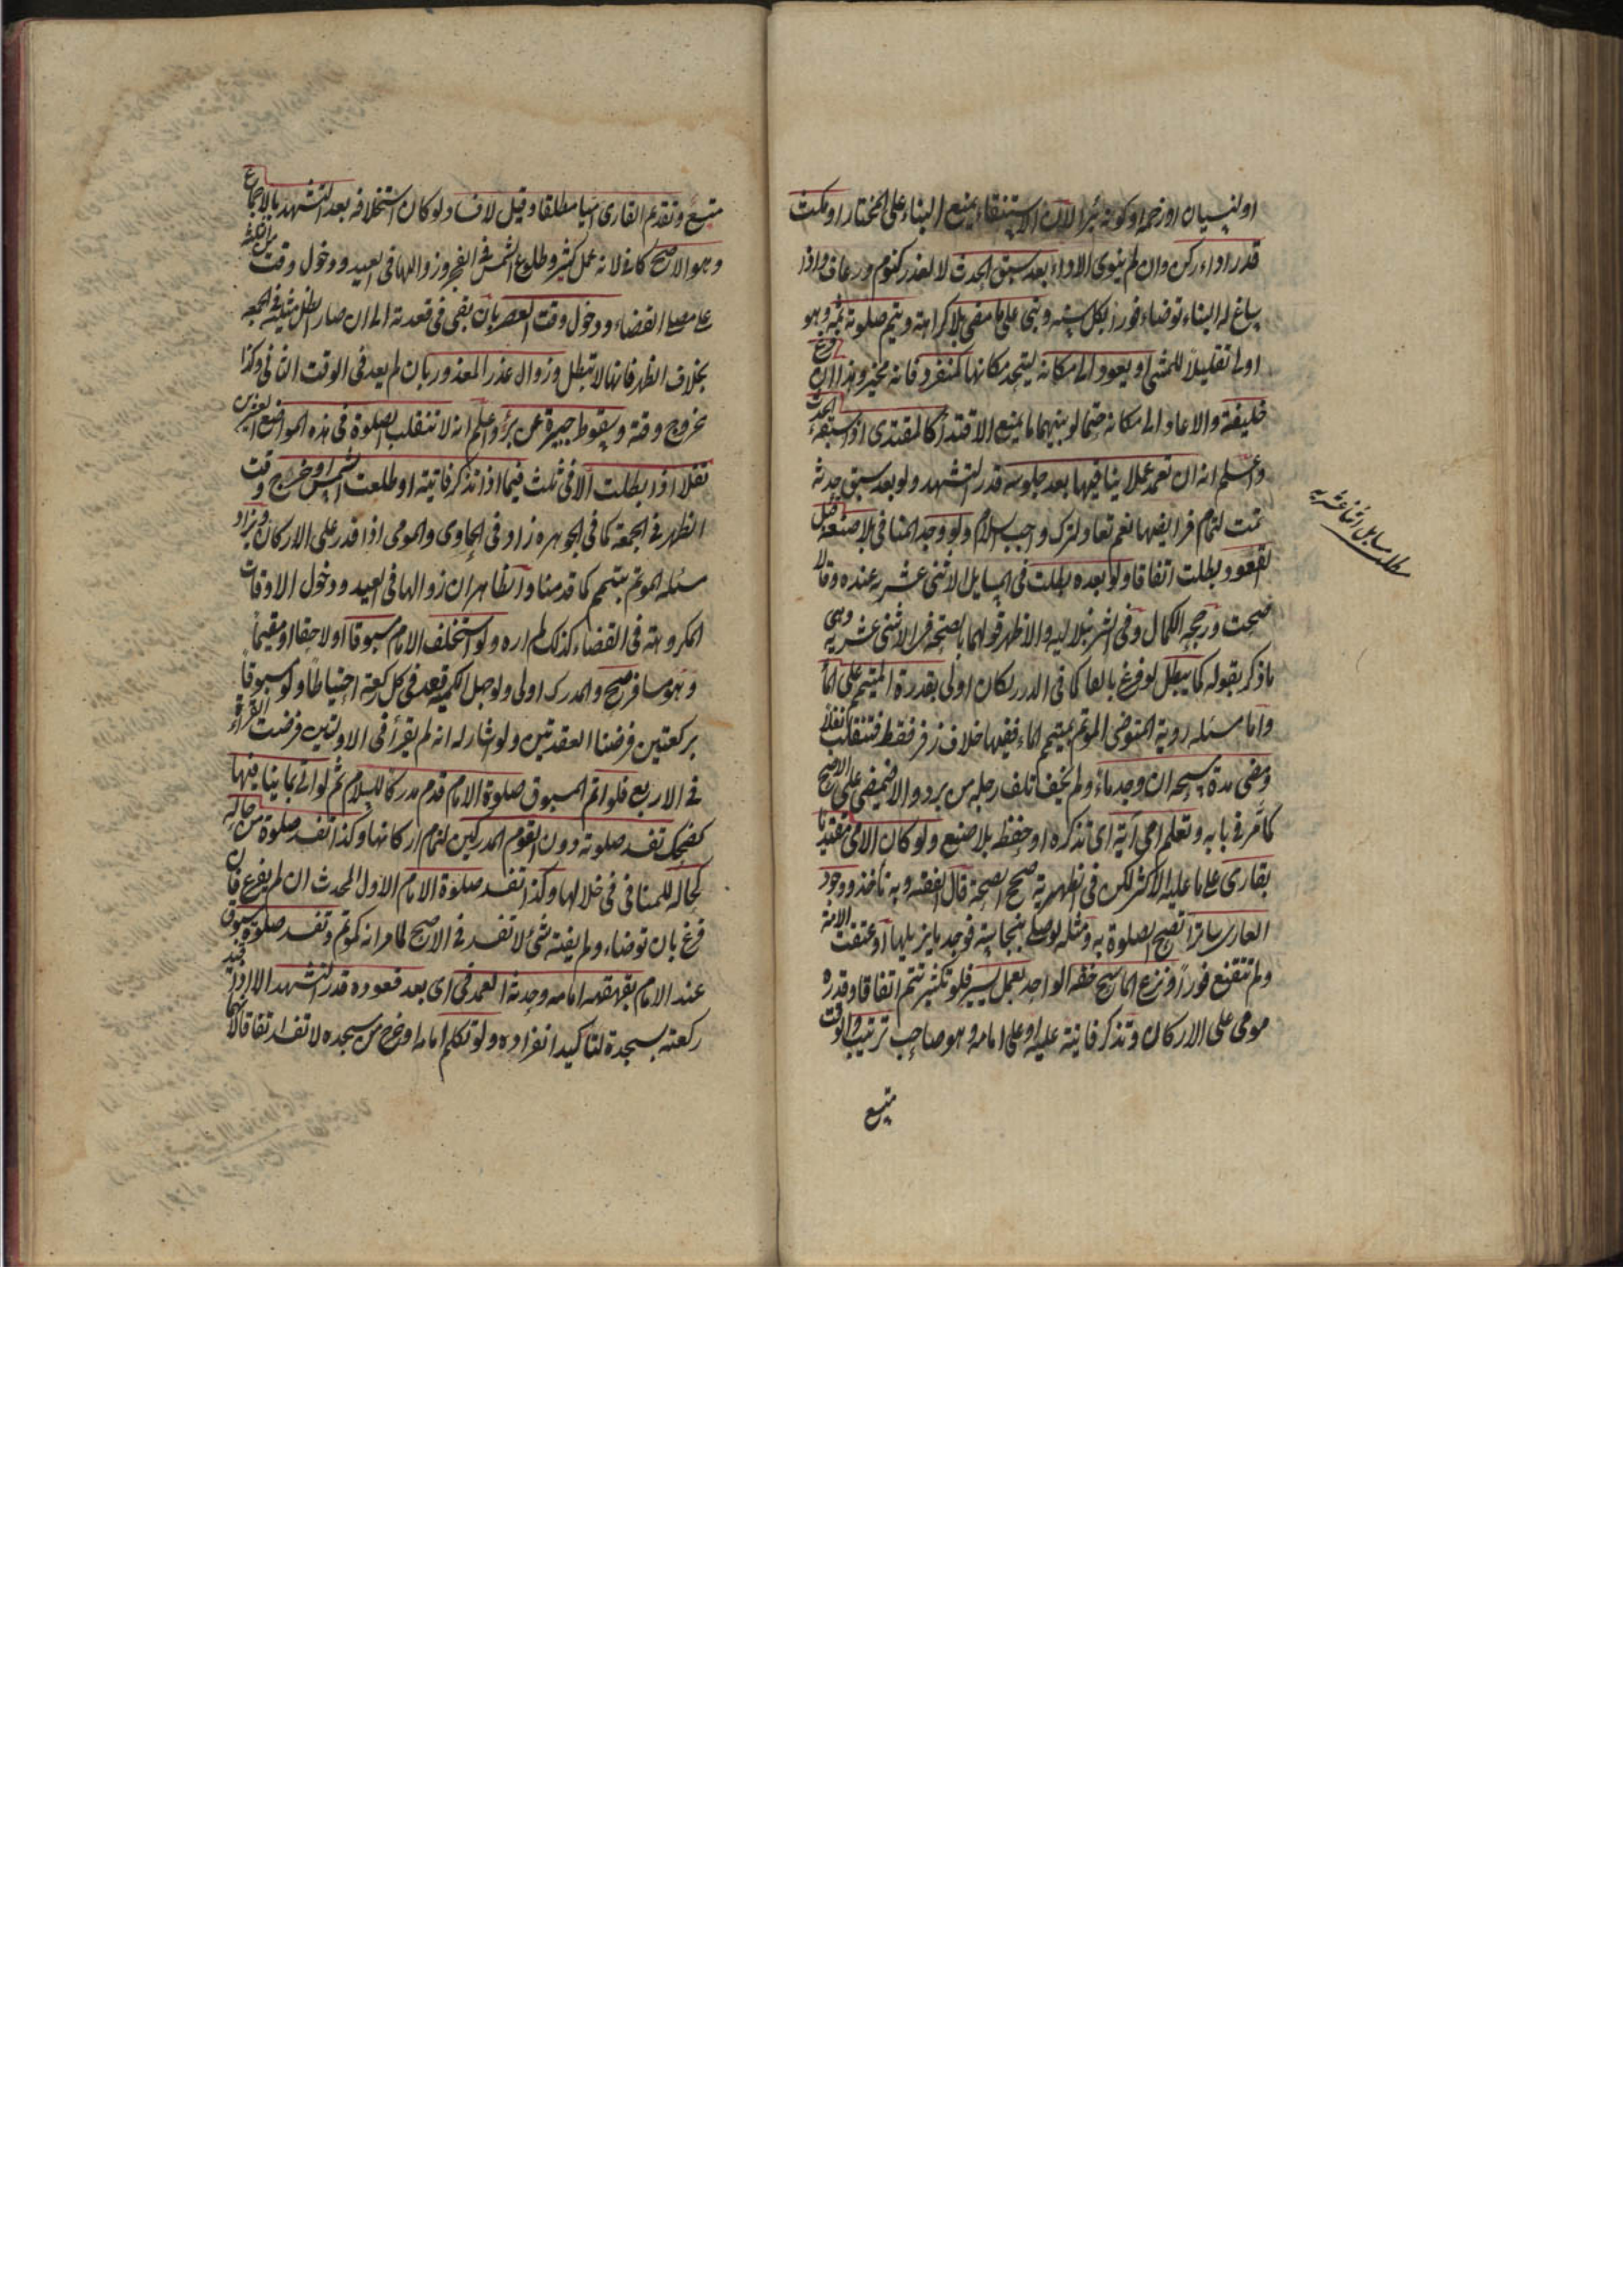 او لنسيان او زحمة او كونه بئرا لان الاستسقاء يمنع البناء على المختار او مكث
قدر اداء ركن وان لم ينوى الاداء بعد سبق الحدث لا لعذر كنوم ورعاف واذا
ساغ له البناء توضاء فورا بكل سنة وبنى على ما مضى بلا كراهة ويتم صلوته ثمه وهو
اولى تقليلا للمشى او يعود الى مكانه ليتحد مكانها كمنفرد فانه مخير وهذا ان فرغ
خليفته والا عاد الى مكانه حتما لو بينهما ما يمنع الاقتداء كالمقتدى اذا سبقه الحدث
واعلم انه ان تعمد عملا ينافيها بعد جلوسه قدر التشهد ولو بعد سبق حدثه
تمت لتمام فرايضها نعم تعاد لترك واجب السلام ولو وجد المنافى بلا صنعه قبل
القعود بطلت اتفاقا ولو بعده بطلت فى المسايل الاثنى عشريه عنده وقالا
صحت ورجحه الكمال وفى الشرنبلاليه والاظهر قولهما بالصحة فى الاثنى عشريه وهى
ما ذكر بقوله كما يبطل لو فرغ بالفا كما فى الدرر لكان اولى بقدرة المتيمم على الماء
واما مسئله روية المتوضى المؤتم بمتيمم الماء ففيها خلاف زفر فقط فتنقلب نفلا
ومضى مدة مسحه ان وجد ماء ولم يخف تلف رجله من برد والا فيمضى على الاصح
كما مر فى بابه وتعلم امى آية اى تذكره او حفظه بلا صنع ولو كان الامى مقتديا
بقارى على ما عليه الاكثر لكن فى الظهيرية صحح الصحة قال الفقيه وبه نأخذ ووجود
العارى ساترا تصح الصلوة به ومثله لو صلى بنجاسة فوجد ما يزيلها او عتقت الامة
ولم تتقنع فورا ونزع الماسح خفه الواحد بعمل يسير فلو بكثير تتم اتفاقا وقدرة
مومى على الاركان وتذكر فايتة عليه او على امامه وهو صاحب ترتيب والوقت
متسع
مطلب مسايل اثنا عشريه
متسع وتقديم القارى اميا مطلقا وقيل لا فساد لو كان استخلافه بعد التشهد بالاجماع
وهو الاصح كافى لانه عمل كثير وطلوع الشمس فى الفجر وزوالها فى العيد ودخول وقت من الثلثة
على مصلى القضاء ودخول وقت العصر بان بقى فى قعدته الى ان صار الظل مثليه فى الجمعه
بخلاف الظهر فانها لا تبطل وزوال عذر المعذور بان لم يعد فى الوقت الثانى وكذا
خروج وقته وسقوط جبيرة عن برؤ واعلم انه لا تنقلب الصلوة فى هذه المواضع العشرين
نفلا اذا بطلت الا فى ثلث فيما اذا تذكر فايتة او طلعت الشمس او خرج وقت
الظهر فى الجمعة كما فى الجوهره زاد فى الحاوى والمومى اذا قدر على الاركان ويزاد
مسئله المؤتم بمتيمم كما قدمنا والظاهر ان زوالها فى العيد ودخول الاوقات
المكروهة فى القضاء كذلك لم اره ولو استخلف الامام مسبوقا او لاحقا او مقيما
وهو مسافر صح والمدرك اولى ولو جهل الكميه قعد فى كل ركعة احتياطا ولو مسبوقا
بركعتين فرضنا القعدتين ولو اشار له انه لم يقرأ فى الاوليين فرضت القراءة
فى الاربع فلو اتم المسبوق صلوة الامام قدم مدركا للسلام ثم لو اتى بما ينافيها
كضحك تفسد صلوته دون القوم المدركين لتمام اركانها وكذا تفسد صلوة من حاله
كحاله للمنافى فى خلالها وكذا تفسد صلوة الامام الاول المحدث ان لم يفرغ فان
فرغ بان توضاء ولم يفته شئ لا تفسد فى الاصح لما مر انه كمؤتم وتفسد صلوة مسبوق
عند الامام بقهقهه امامه وحدثه العمد فى اى بعد قعوده قدر التشهد الا اذا قيد
ركعته بسجدة لتاكيد انفراده ولو تكلم امامه او خرج من مسجده لا تفسد اتفاقا لانهما